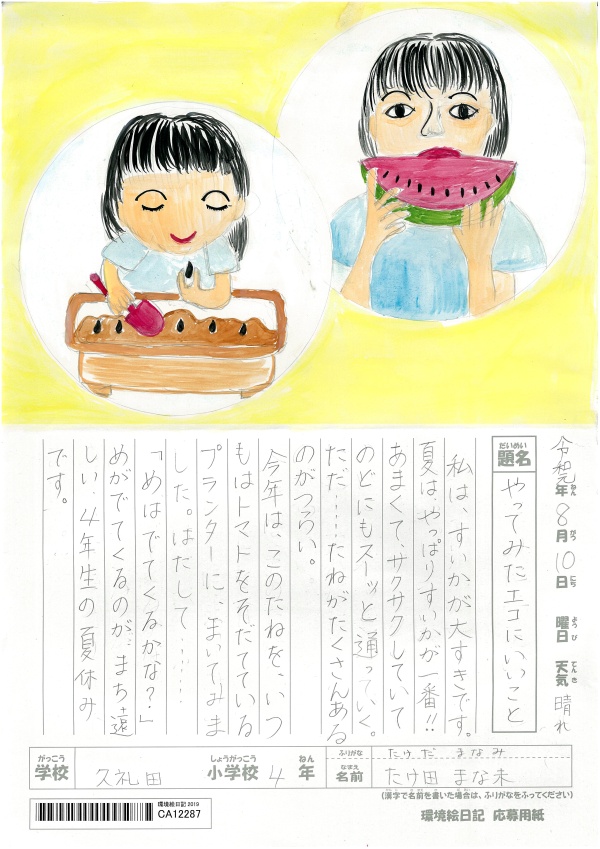 令和元年8月10日 曜日 天気 晴れ
ねん がつ にち ようび てんき
だいめい
題名 やってみたエコにいいこと
私は、すいかが大すきです。
夏は、やっぱりすいかが一番!!
あまくて、サクサクしていて
のどにもスーッと通っていく。
ただ……たねがたくさんある
のがつらい。
今年は、このたねを、いつ
もはトマトをそだてている
プランターに、まいてみま
した。はたして………
「めはでてくるかな？」
めがでてくるのが、まち遠
しい、4年生の夏休み
です。
がっこう しょうがっこう ねん
学校 久礼田 小学校 4年
ふりがな たけだ まなみ
なまえ
名前 たけ田 まな未
(漢字で名前を書いた場合は、ふりがなをふってください)
環境絵日記 応募用紙
環境絵日記 2019
CA12287